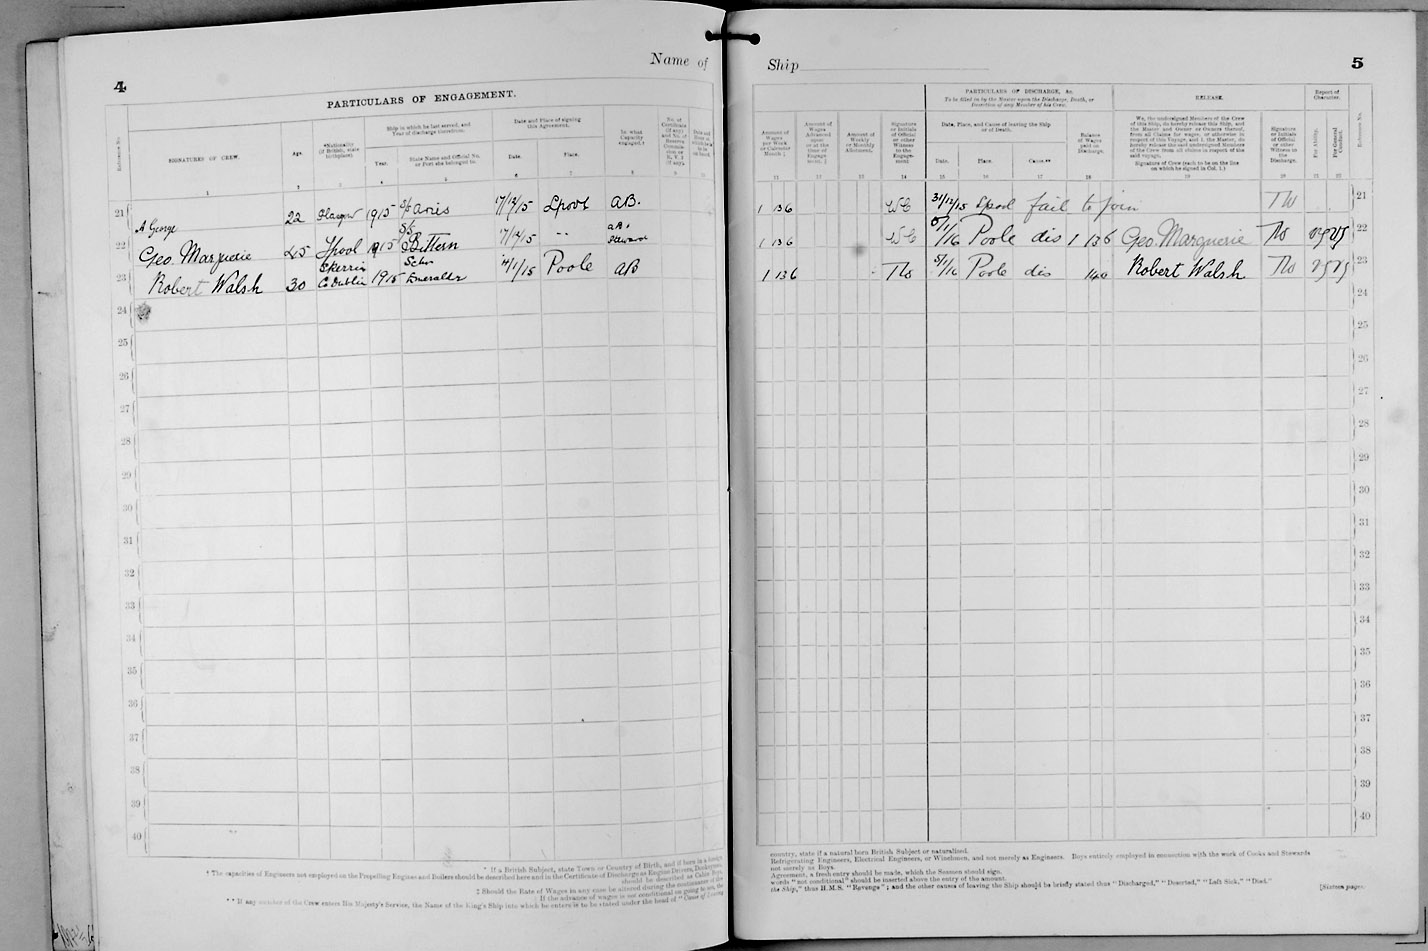 4
Name of
PARTICULARS OF ENGAGEMENT.
Reference No.
SIGNATURES OF CREW.
Age.
*Nationality (if British, state birthplace)
Ship in which he last served, and Year of discharge therefrom.
Year.
State Name and Official No. or Port she belonged to.
Date and Place of signing this Agreement.
Date.
Place.
In what Capacity engaged.†
No. of Certificate (if any) and No. of Reserve Commission or R. V. 2 (if any).
21 A George 22 Glasgow 1915 S/S Aries 17/12/15 Lpool AB.
22 Geo. Marguerie 45 Lpool 1915 S/S Bittern 17/12/15 " " AB. Steward
23 Robert Walsh 30 Skerries Co Dublin 1915 Schr Emeralds 4/1/15 Poole AB
24
25
26
27
28
29
30
31
32
33
34
35
36
37
38
39
40
* If a British Subject, state Town or Country of Birth, and if born in a foreign
† The capacities of Engineers not employed on the Propelling Engines and Boilers should be described here and in the Certificate of Discharge as Engine Drivers, Donkeymen,
should be described as Cabin Boys,
‡ Should the Rate of Wages in any case be altered during the continuance of this
If the advance of wages is not conditional on going to sea, the
** If any member of the Crew enters His Majesty's Service, the Name of the King's Ship into which he enters is to be stated under the head of "Cause of Leaving
Ship
5
PARTICULARS OF DISCHARGE, &c.
To be filled in by the Master upon the Discharge, Death, or Desertion of any Member of his Crew.
RELEASE.
Report of Character.
Amount of Wages per Week or Calendar Month ‡
Amount of Wages Advanced upon or at the time of Engagement. ‡
Amount of Weekly or Monthly Allotment.
Signature or Initials of Official or other Witness to the Engagement
Date, Place, and Cause of leaving the Ship or of Death.
Date.
Place.
Cause.**
Balance of Wages paid on Discharge.
We, the undersigned Members of the Crew of this Ship, do hereby release this Ship, and the Master and Owner or Owners thereof, from all Claims for wages, or otherwise in respect of this Voyage, and I, the Master, do hereby release the said undersigned Members of the Crew from all claims in respect of the said voyage.
Signature of Crew (each to be on the line on which he signed in Col. 1.)
Signature or Initials of Official or other Witness to the Discharge.
For Ability.
For General Conduct.
Reference No.
1 13 6 WC 31/12/15 Lpool fail to join TW 21
1 13 6 WC 5/1/16 Poole dis 1 13 6 Geo. Marguerie TW VG VG 22
1 13 6 TW 5/1/16 Poole dis 1/4 0 Robert Walsh TW VG VG 23
24
25
26
27
28
29
30
31
32
33
34
35
36
37
38
39
40
country, state if a natural born British Subject or naturalised.
Refrigerating Engineers, Electrical Engineers, or Winchmen, and not merely as Engineers. Boys entirely employed in connection with the work of Cooks and Stewards
not merely as Boys.
Agreement, a fresh entry should be made, which the Seamen should sign.
words "not conditional" should be inserted above the entry of the amount.
the Ship," thus H.M.S. "Revenge"; and the other causes of leaving the Ship should be briefly stated thus "Discharged," "Deserted," "Left Sick," "Died."
[Sixteen pages.